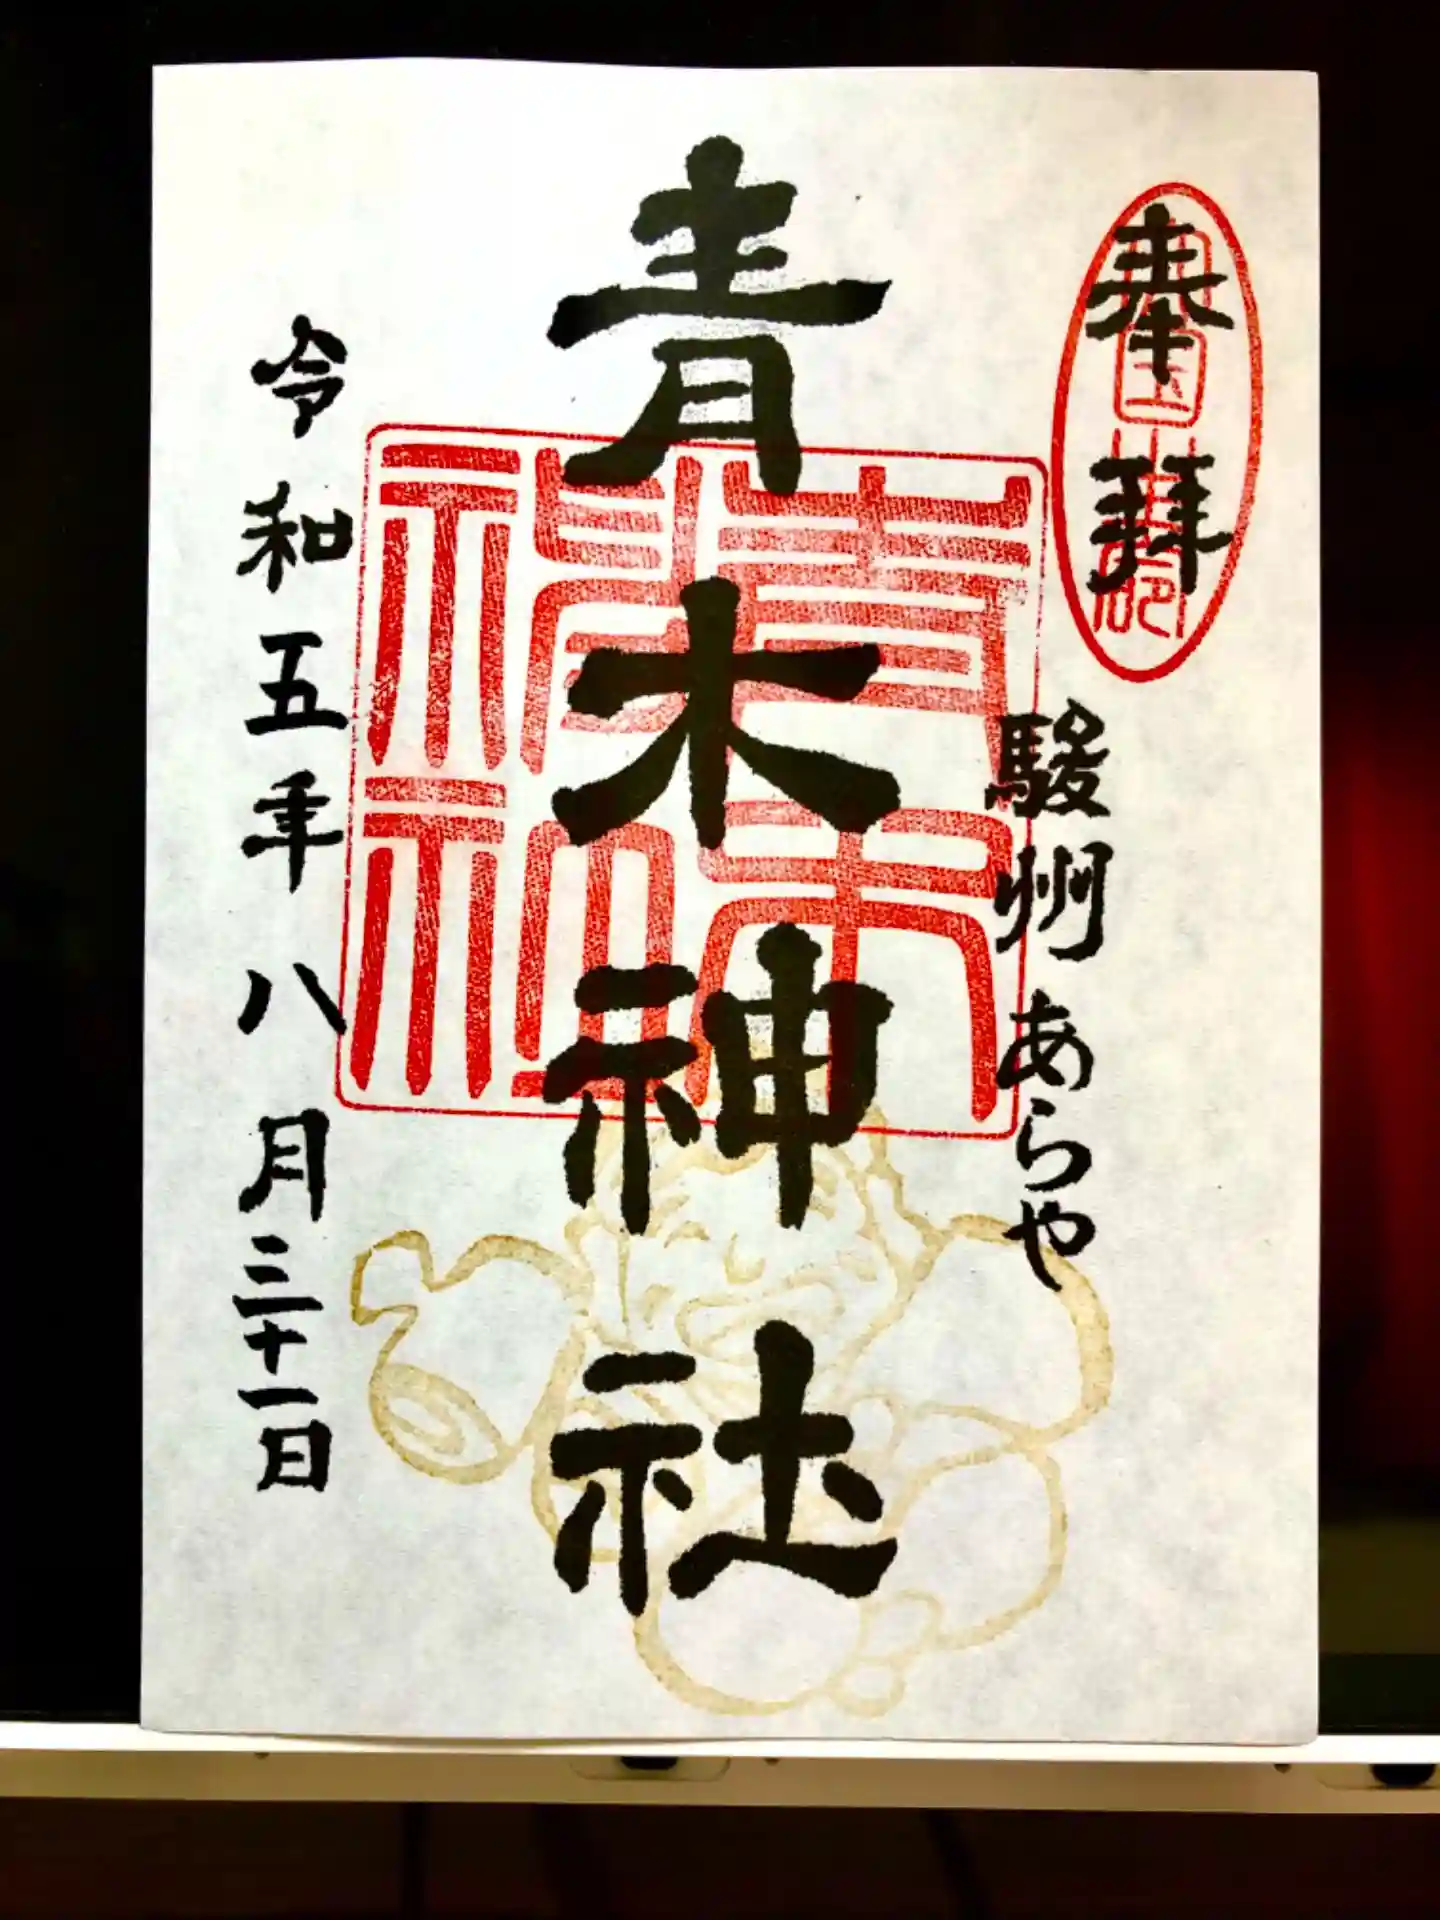 奉拝
駿州あらや
青木神社
令和五年八月三十一日